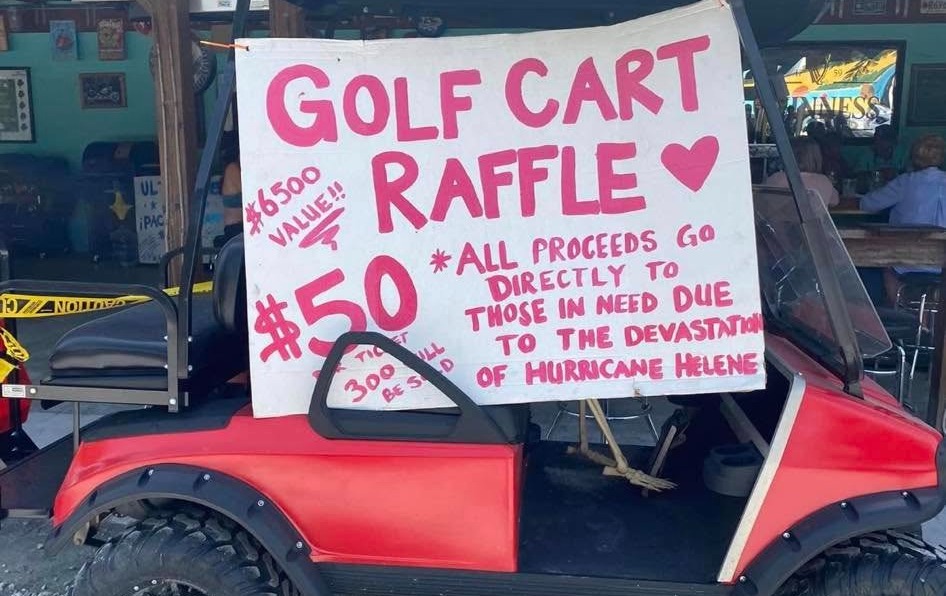 GOLF CART
RAFFLE
$6500
VALUE!!
$50
TICKET
300
BE SOLD
*ALL PROCEEDS GO
DIRECTLY TO
THOSE IN NEED DUE
TO THE DEVASTATION
OF HURRICANE HELENE
CAUTION